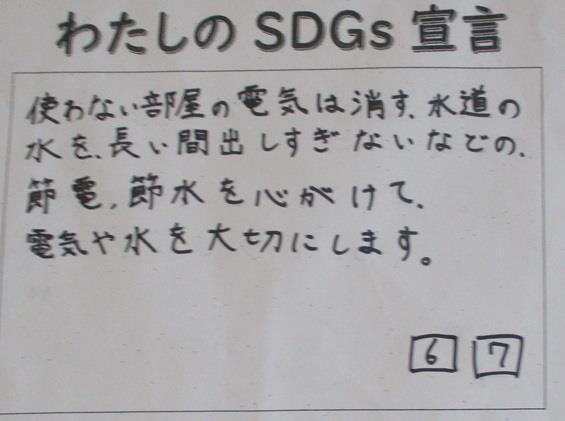 わたしの SDGs 宣言
使わない部屋の電気は消す、水道の
水を、長い間出しすぎないなどの、
節電、節水を心がけて、
電気や水を大切にします。
6 7